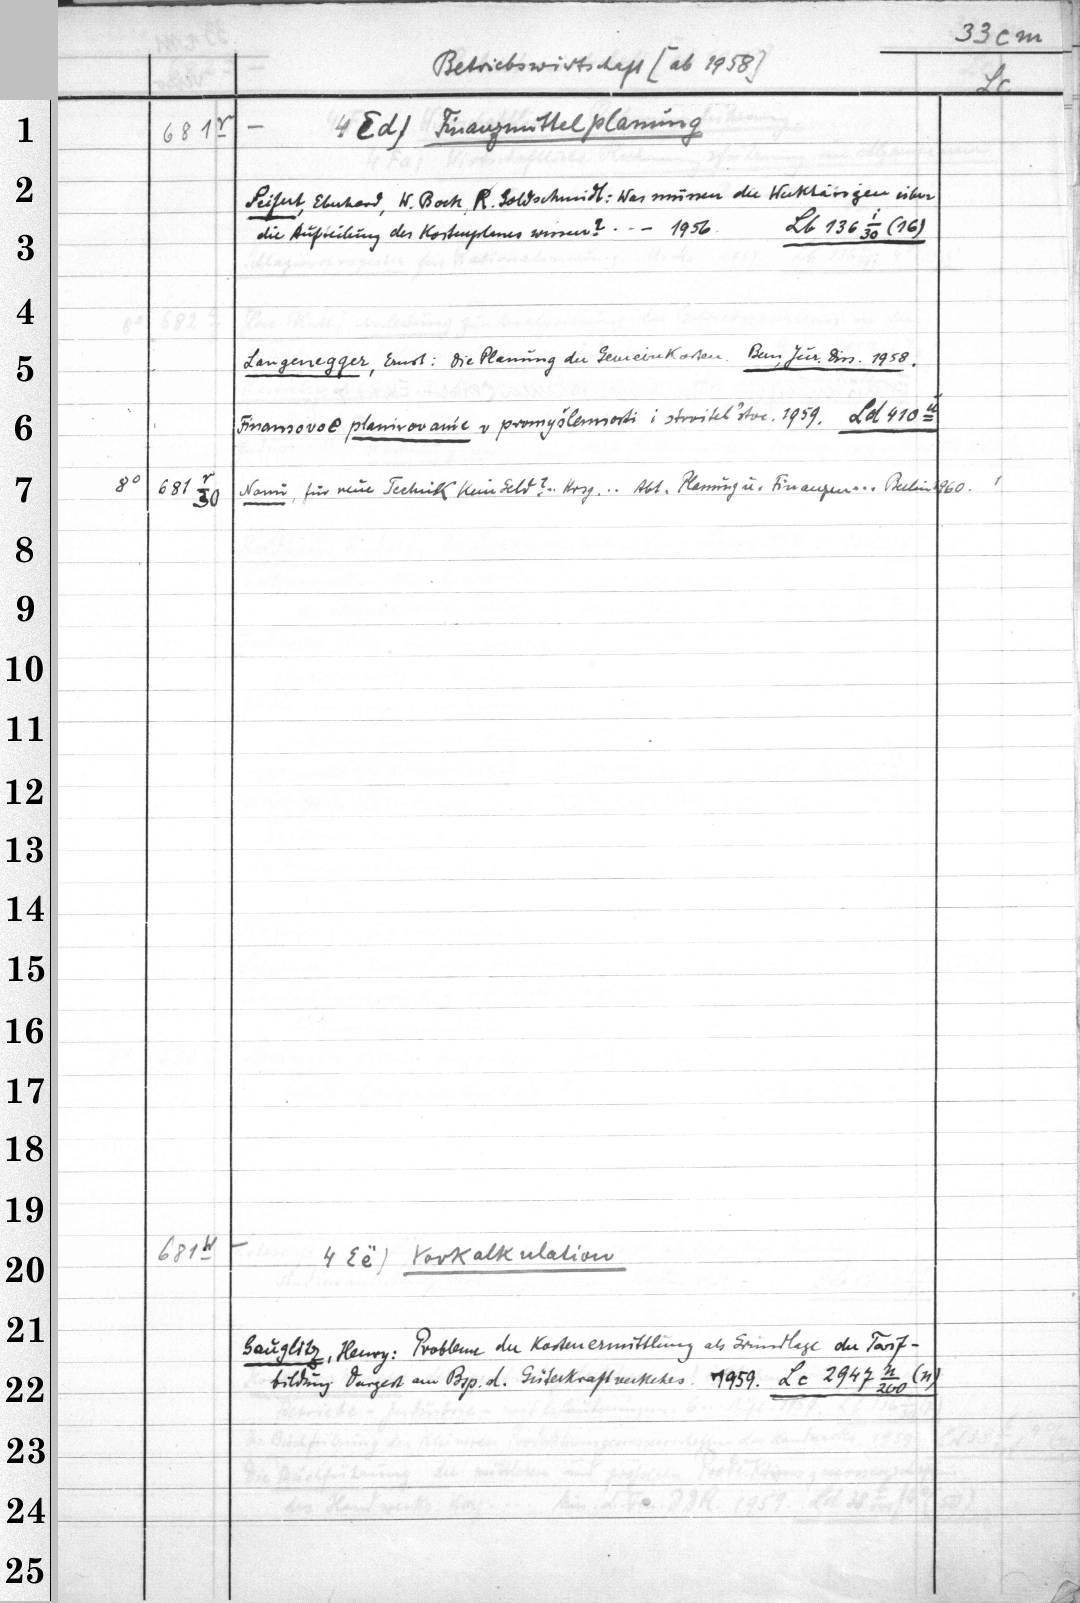 33 cm
Betriebswirtschaft [ab 1958]
Lc
1 681 r — 4 Ed) Finanzmittelplanung
2 Seifert, Eberhard, W. Bock, R. Goldschmidt: Was müssen die Werktätigen über
3 die Aufteilung des Kostenplanes wissen? . . — 1956. Lb 136 i/30 (16)
4
5 Langenegger, Ernst: Die Planung der Gemeinkosten. Bern, Jur. Diss. 1958.
6 Finansovoe planirovanie v promyšlennosti i stroitel'stve. 1959. Ld 410
7 8° 681 r/30 Nanu, für neue Technik kein Geld? .. Hrsg. .. Abt. Planung u. Finanzen... Berlin 1960. 1
8
9
10
11
12
13
14
15
16
17
18
19
20 681 w — 4 Eë) Vorkalkulation
21 Gauglitz, Henry: Probleme der Kostenermittlung als Grundlage der Tarif-
22 bildung. Dargest. am Bsp. d. Güterkraftverkehrs. 1959. Lc 2947 n/260 (n)
23
24
25